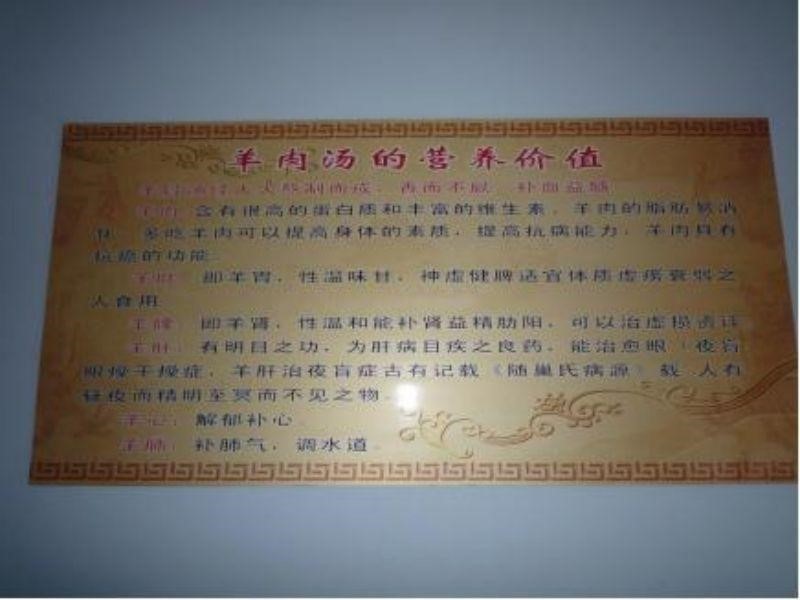 羊肉汤的营养价值
羊肉汤经大火熬制而成，香而不腻，补血益髓
羊肉：含有很高的蛋白质和丰富的维生素，羊肉的脂肪易消
化，多吃羊肉可以提高身体的素质，提高抗病能力，羊肉具有
抗癌的功能
羊肚：即羊胃，性温味甘，神虚健脾适宜体质虚痨衰弱之
人食用
即羊肾，性温和能补肾益精肋阳，可以治虚损
羊肝：有明目之功，为肝病目疾之良药，能治愈眼（夜盲
眼燥干燥症，羊肝治夜盲症古有记载《随巢氏病源》载 人有
昼夜而精明至冥而不见之物。
羊心：解郁补心
羊肺：补肺气，调水道